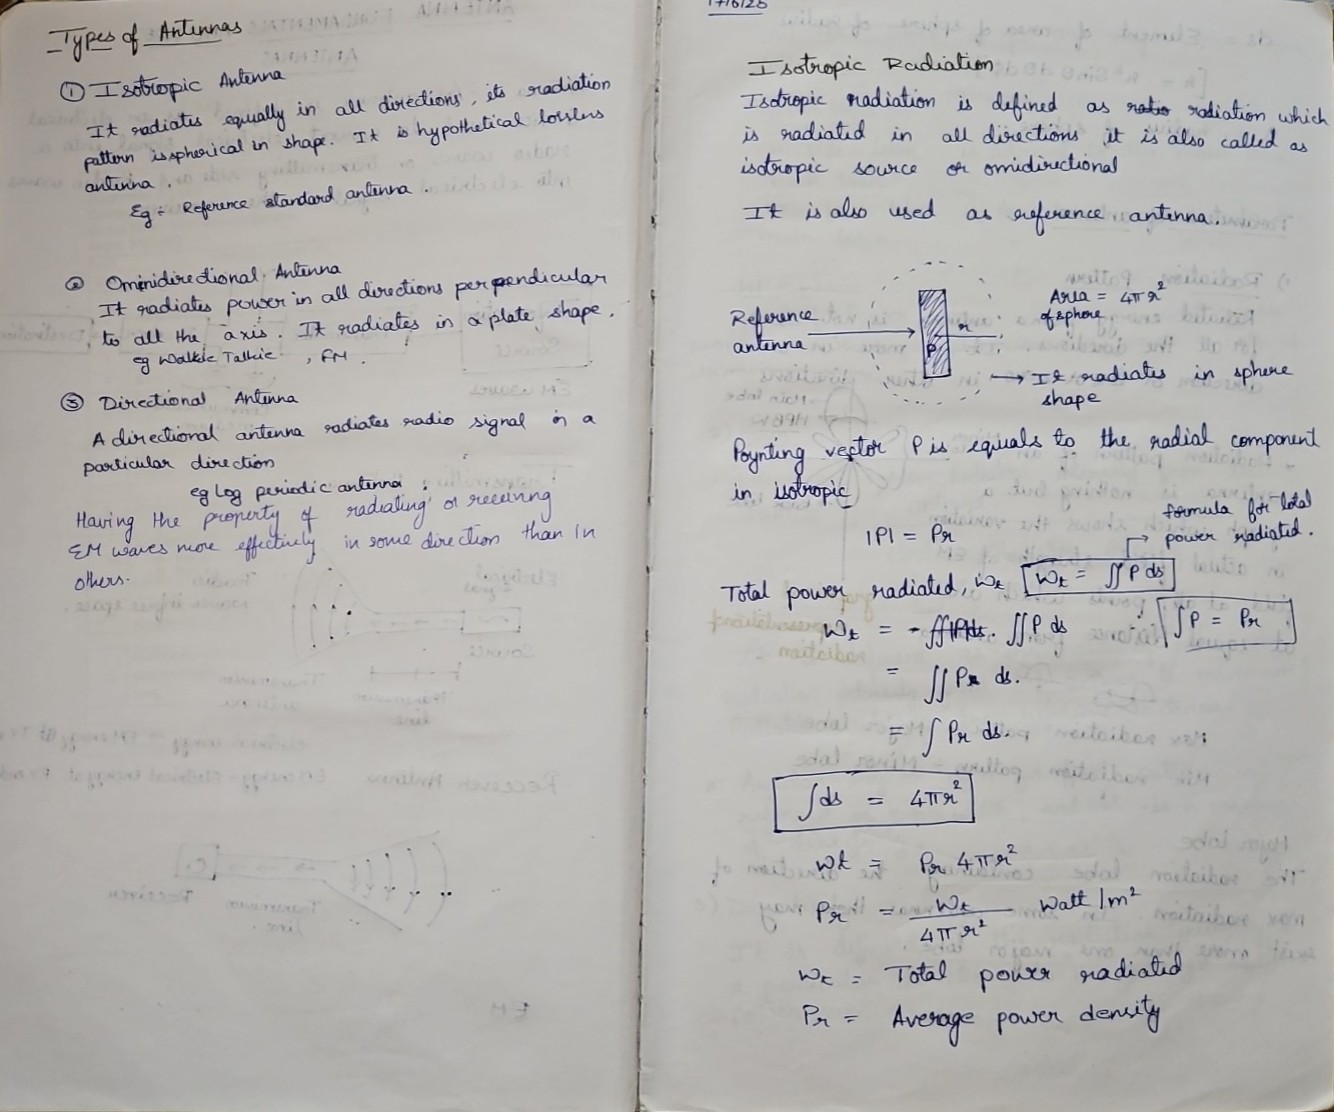 Types of Antennas
① Isotropic Antenna
It radiates equally in all directions, its radiation
pattern is spherical in shape. It is hypothetical lossless
antenna.
Eg ÷ Reference standard antenna.
② Ominidirectional Antenna
It radiates power in all directions perpendicular
to all the axis. It radiates in a plate shape.
eg Walkie Talkie, FM.
③ Directional Antenna
A directional antenna radiates radio signal in a
particular direction
eg Log periodic antenna.
Having the property of radiating or receiving
EM waves more effectively in some direction than in
others.
17/6/25
Isotropic Radiation
Isotropic radiation is defined as radiation which
is radiated in all directions it is also called as
isotropic source or omidirectional
It is also used as reference antenna.
Reference
antenna
P
r
Area = 4πr²
of sphere
→ It radiates in sphere
shape
Poynting vector P is equals to the radial component
in isotropic
|P| = Pr
formula for total
power radiated.
Total power radiated, Wt Wt = ∬P ds
Wt = ∬P ds
∫P = Pr
= ∬Pr ds.
= ∫Pr ds.
∫ds = 4πr²
Wt = Pr 4πr²
Pr = Wt / 4πr² Watt/m²
Wt = Total power radiated
Pr = Average power density